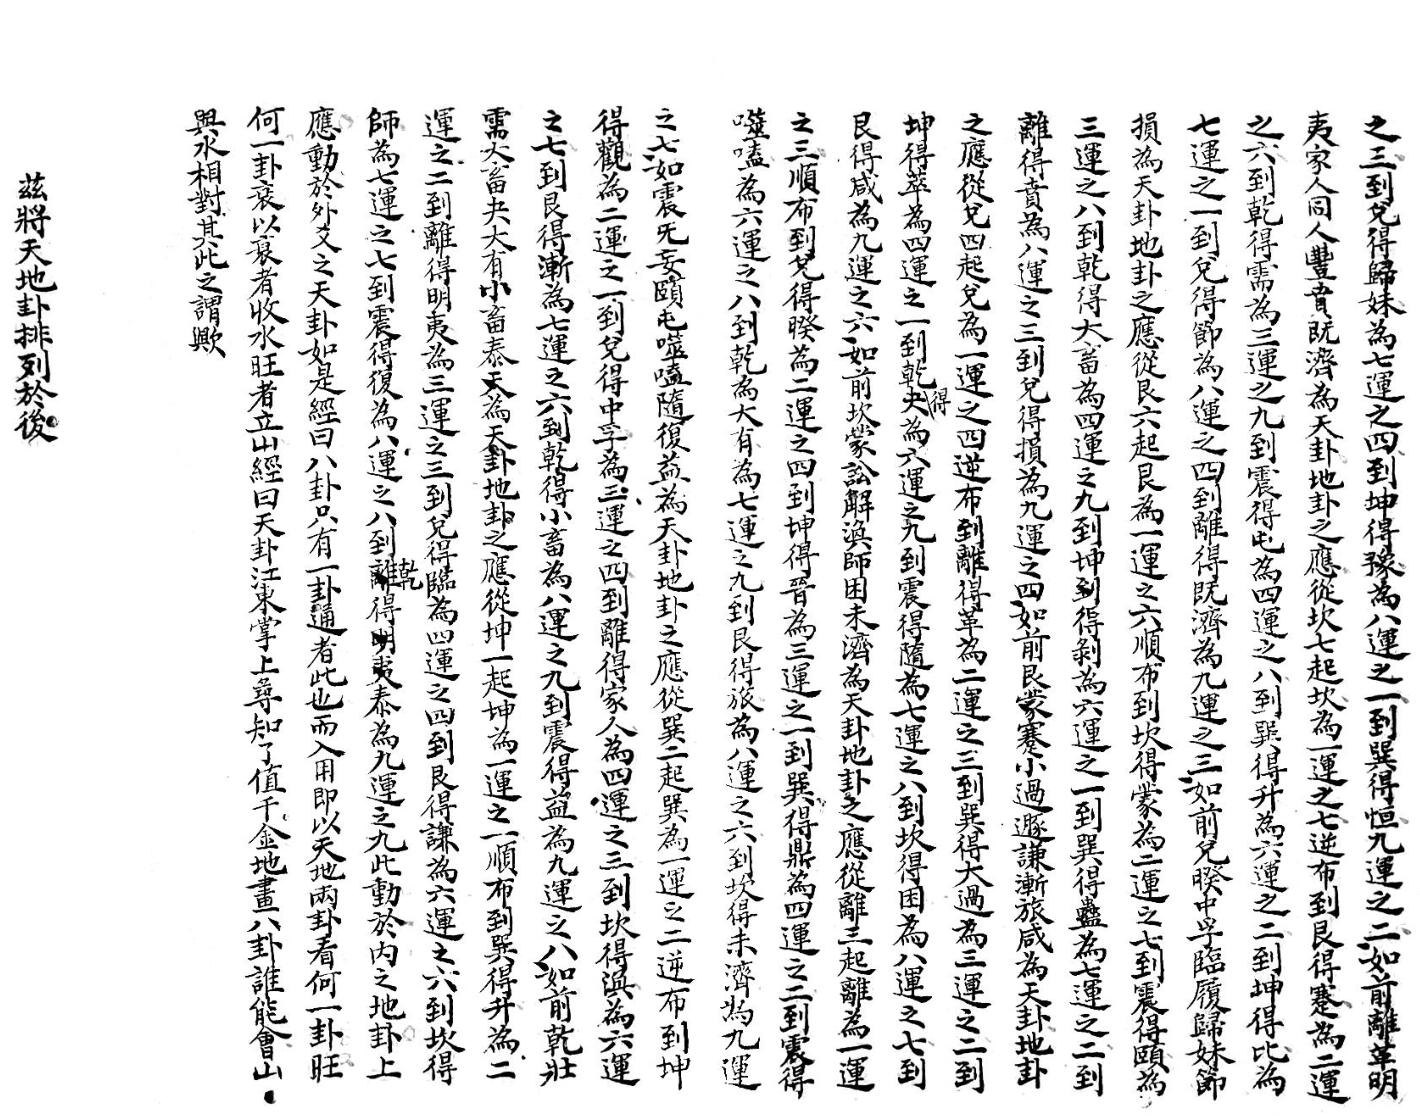 之三到兌得歸妹為七運之四到坤得豫為八運之一到巽得恒九運之二如前離革明
夷家人同人豐賁既濟為天卦地卦之應從坎七起坎為一運之七逆布到艮得蹇為二運
之六到乾得需為三運之九到震得屯為四運之八到巽得升為六運之二到坤得比為
七運之一到兌得節為八運之四到離得既濟為九運之三如前兌暌中孚臨履歸妹節
損為天卦地卦之應從艮六起艮為一運之六順布到坎得蒙為二運之七到震得頤為
三運之八到乾得大畜為四運之九到坤到得剝為六運之一到巽得蠱為七運之二到
離得賁為八運之三到兌得損為九運之四如前艮蒙蹇小過遯謙漸旅咸為天卦地卦
之應從兌四起兌為一運之四逆布到離得革為二運之三到巽得大過為三運之二到
坤得萃為四運之一到乾得夬為六運之九到震得隨為七運之八到坎得困為八運之七到
艮得咸為九運之六如前坎蒙訟解渙師困未濟為天卦地卦之應從離三起離為一運
之三順布到兌得暌為二運之四到坤得晉為三運之一到巽得鼎為四運之二到震得
噬嗑為六運之八到乾為大有為七運之九到艮得旅為八運之六到坎得未濟為九運
之七如震旡妄頤屯噬嗑隨復益為天卦地卦之應從巽二起巽為一運之二逆布到坤
得觀為二運之一到兌得中孚為三運之四到離得家人為四運之三到坎得渙為六運
之七到艮得漸為七運之六到乾得小畜為八運之九到震得益為九運之八如前乾壯
需大畜夬大有小畜泰天為天卦地卦之應從坤一起坤為一運之一順布到巽得升為二
運之二到離得明夷為三運之三到兌得臨為四運之四到艮得謙為六運之六到坎得
師為七運之七到震得復為八運之八到離乾得明夷泰為九運之九此動於內之地卦上
應動於外爻之天卦如是經曰八卦只有一卦通者此也而入用即以天地兩卦看何一卦旺
何一卦衰以衰者收水旺者立山經曰天卦江東掌上尋知了值千金地畫八卦誰能會山
與水相對其此之謂歟
茲將天地卦排列於後